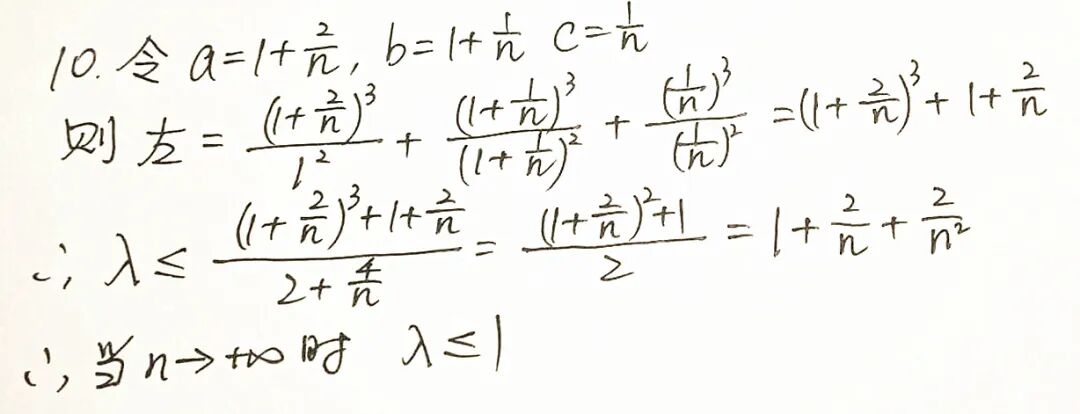 10. 令 a=1+\frac{2}{n}, b=1+\frac{1}{n} c=\frac{1}{n}
则 左 = \frac{(1+\frac{2}{n})^3}{1^2} + \frac{(1+\frac{1}{n})^3}{(1+\frac{1}{n})^2} + \frac{(\frac{1}{n})^3}{(\frac{1}{n})^2} = (1+\frac{2}{n})^3 + 1 + \frac{2}{n}
∴ λ ≤ \frac{(1+\frac{2}{n})^3+1+\frac{2}{n}}{2+\frac{4}{n}} = \frac{(1+\frac{2}{n})^2+1}{2} = 1+\frac{2}{n}+\frac{2}{n^2}
∴ 当 n→+∞ 时 λ≤1